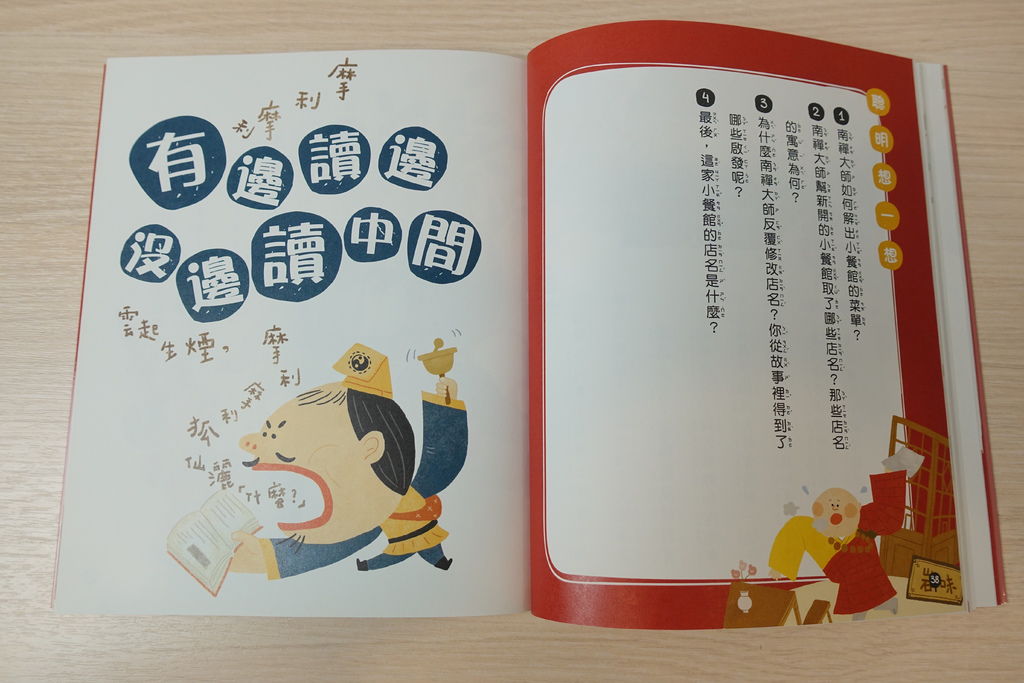 聰明想一想
1 南禪大師如何解出小餐館的菜單？
2 南禪大師幫新開的小餐館取了哪些店名？那些店名
的寓意為何？
3 為什麼南禪大師反覆修改店名？你從故事裡得到了
哪些啟發呢？
4 最後，這家小餐館的店名是什麼？
味
38
摩利摩利
有邊讀邊
沒邊讀中間
雲起生煙，
摩利摩利
狐仙灑「什麼？」